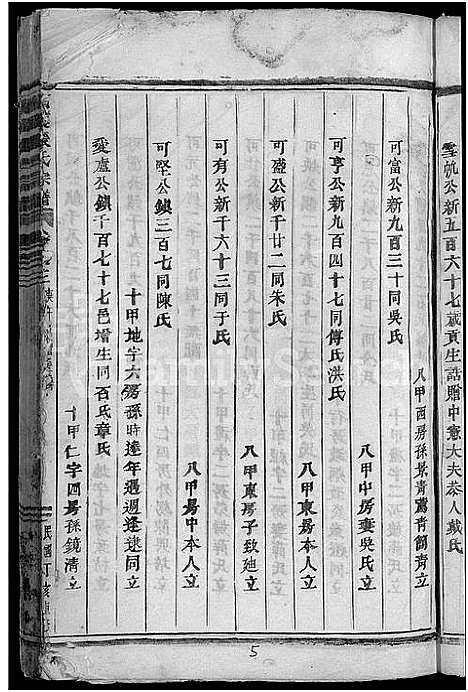 雲帆公新五百六十七歲貢生誥贈中憲大夫恭人戴氏
八甲西房孫景青鶯青簡青立
可富公新九百三十同吳氏
八甲中房妻吳氏立
可亨公新九百四十七同傅氏洪氏
八甲東房本人立
可盛公新千廿二同朱氏
八甲東房子致廸立
可有公新千六十三同于氏
八甲房中本人立
可堅公鎮三百七同陳氏
十甲地字六房孫時逵年週逢逮同立
愛盧公鎮千百七十七邑增生同百氏章氏
十甲仁字四房孫鏡清立
氏宗譜
民國丁亥
5